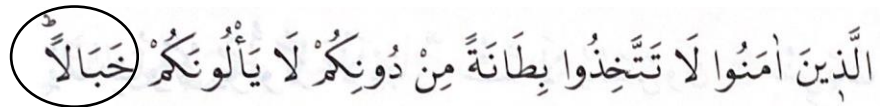 الَّذِينَ اٰمَنُوا لَا تَتَّخِذُوا بِطَانَةً مِنْ دُونِكُمْ لَا يَأْلُونَكُمْ خَبَالًاؕ